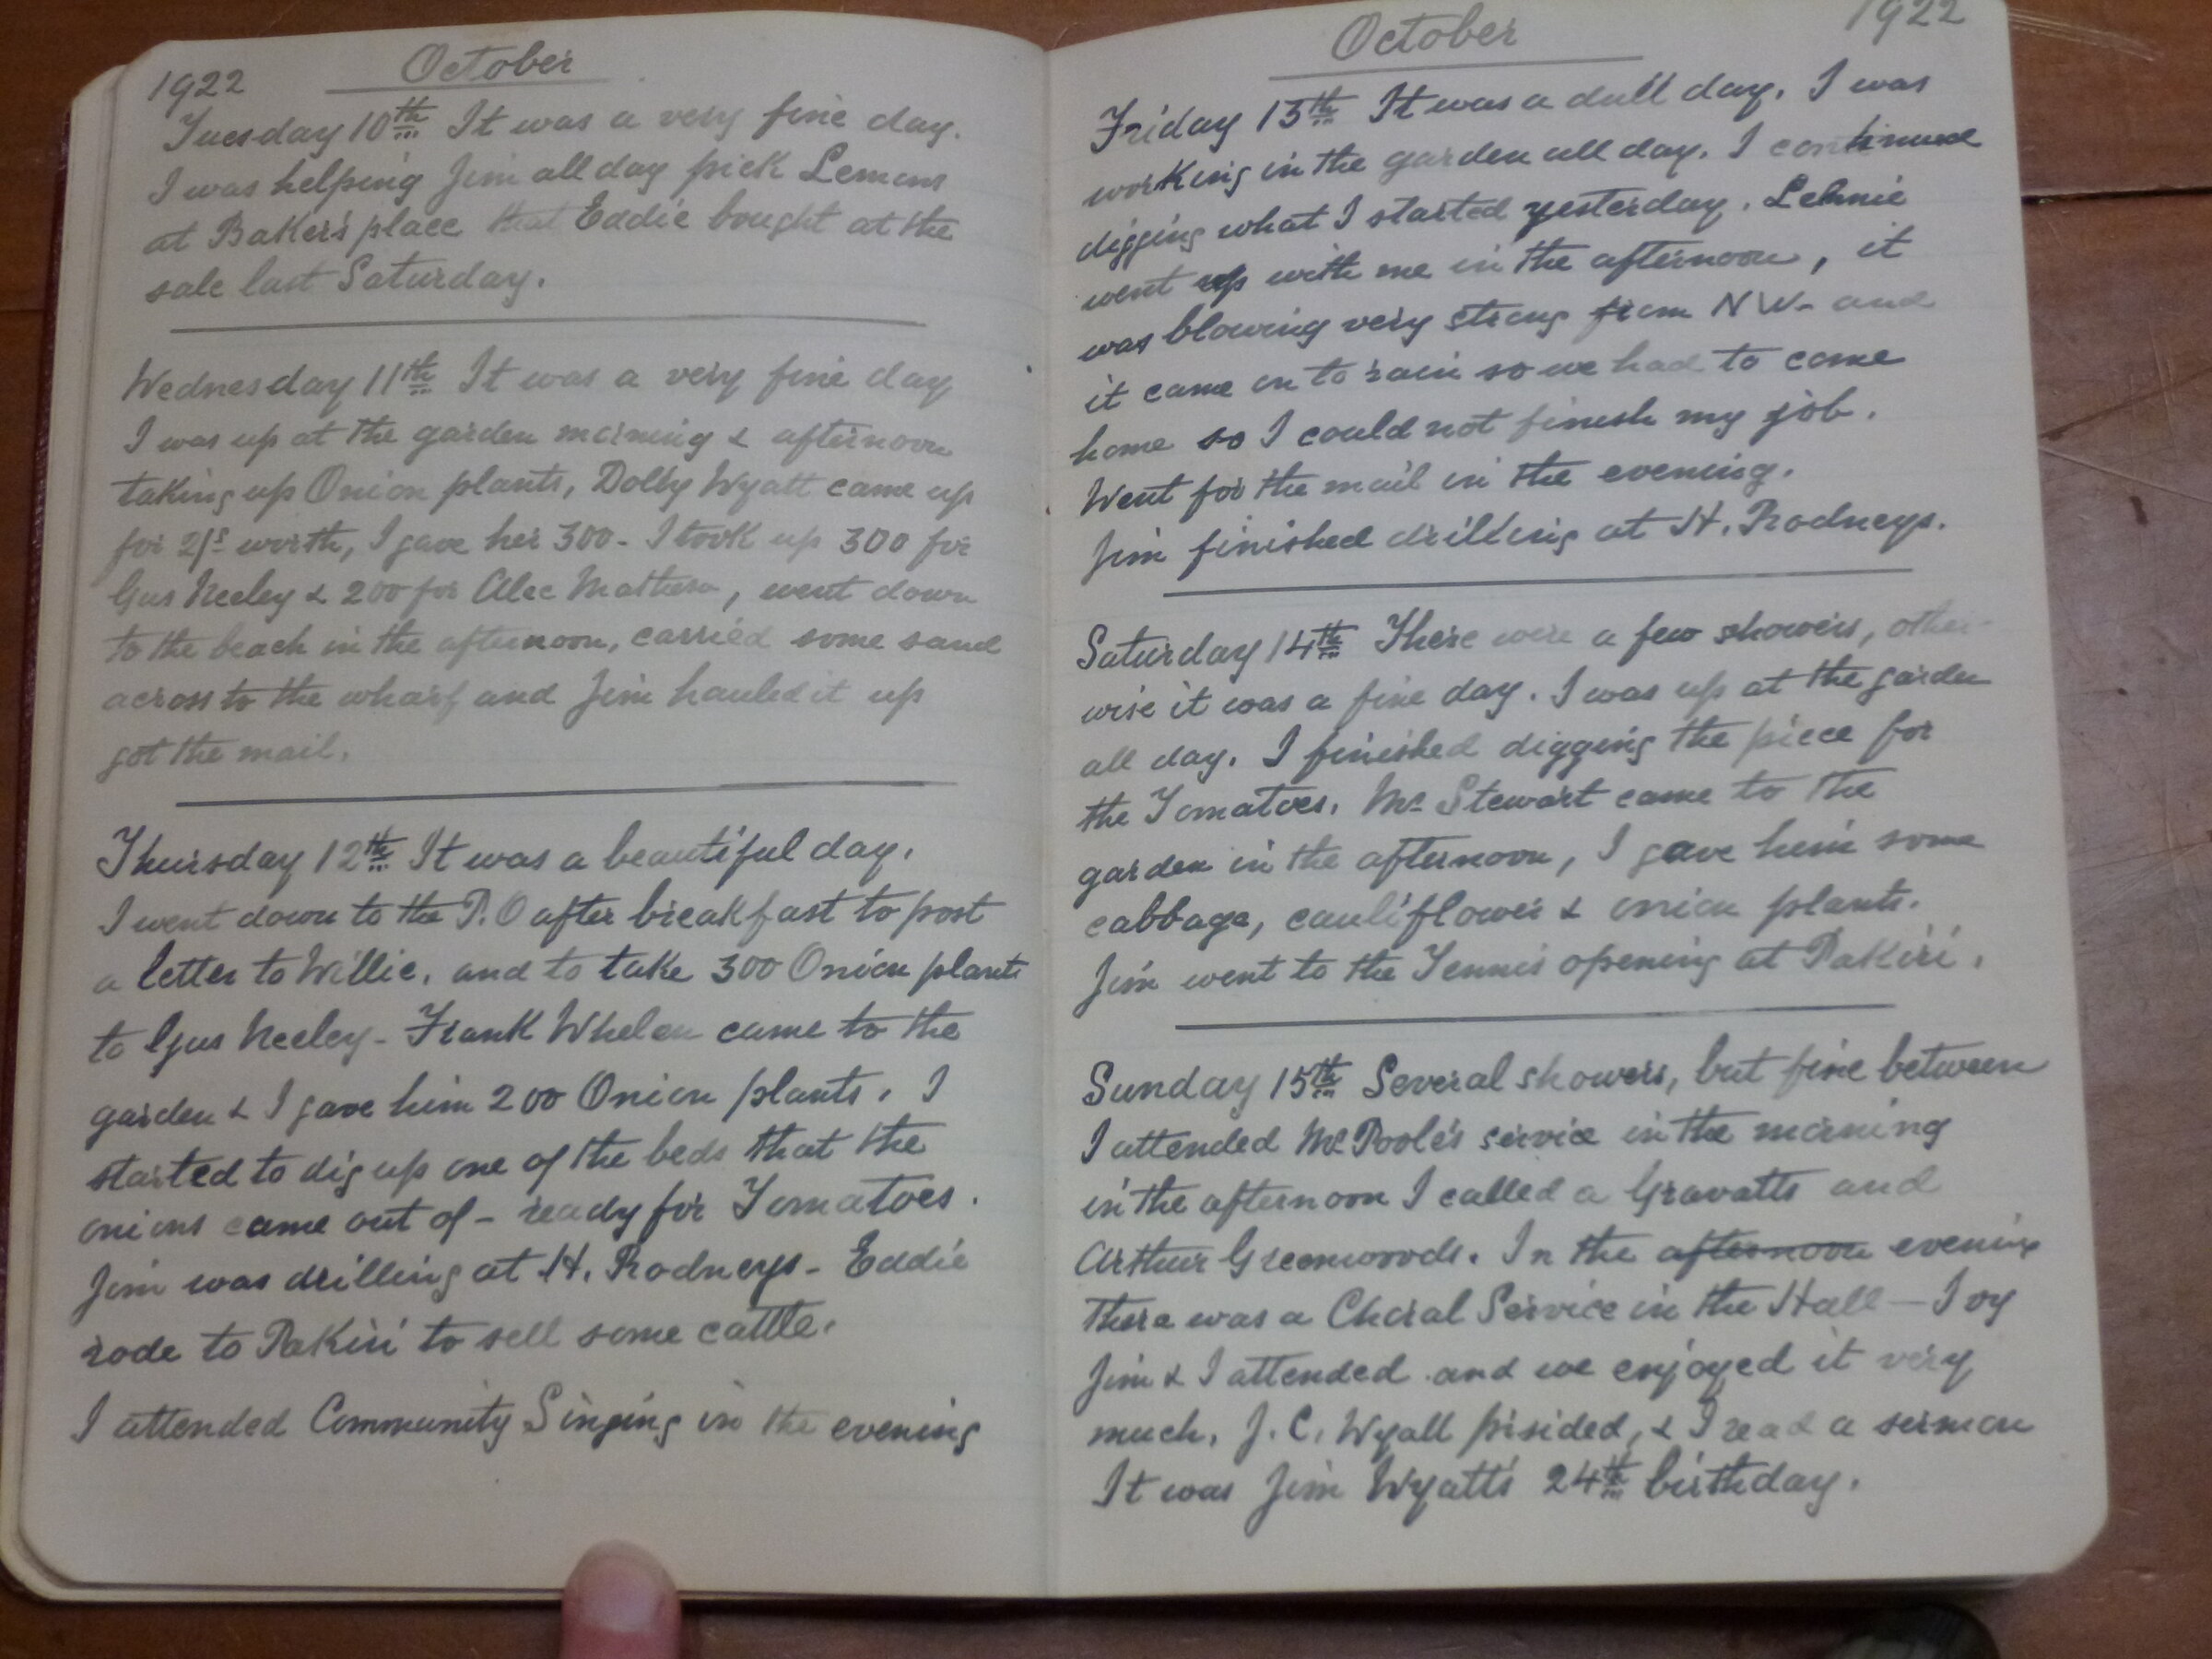 1922 October
Tuesday 10th It was a very fine day.
I was helping Jim all day pick Lemons
at Baker's place that Eddie bought at the
sale last Saturday.
Wednesday 11th It was a very fine day
I was up at the garden morning & afternoon
taking up Onion plants, Dolly Wyatt came up
for 2/s worth, I gave her 300 - I took up 300 for
Gus Neeley & 200 for Alec Matheson, went down
to the beach in the afternoon, carried some sand
across to the wharf and Jim hauled it up
got the mail.
Thursday 12th It was a beautiful day.
I went down to the P.O after breakfast to post
a letter to Willie, and to take 300 Onion plants
to Gus Neeley - Frank Whelan came to the
garden & I gave him 200 Onion plants. I
started to dig up one of the beds that the
onions came out of - ready for Tomatoes.
Jim was drilling at H. Rodneys - Eddie
rode to Pakiri to sell some cattle.
I attended Community Singing in the evening
October 1922
Friday 13th It was a dull day. I was
working in the garden all day. I continued
digging what I started yesterday. Lehnie
went up with me in the afternoon, it
was blowing very strong from NW - and
it came on to rain so we had to come
home so I could not finish my job.
Went for the mail in the evening.
Jim finished drilling at H. Rodneys.
Saturday 14th There were a few showers, other-
wise it was a fine day. I was up at the garden
all day. I finished digging the piece for
the Tomatoes. Mr Stewart came to the
garden in the afternoon, I gave him some
cabbage, cauliflower & onion plants.
Jim went to the Tennis opening at Pakiri.
Sunday 15th Several showers, but fine between
I attended Mr Poole's service in the morning
in the afternoon I called a Gravatts and
Arthur Greenwoods. In the afternoon evening
there was a Choral Service in the Hall - Ivy
Jim & I attended and we enjoyed it very
much. J. C. Wyatt prisided, & I read a sermon
It was Jim Wyatt's 24th birthday.